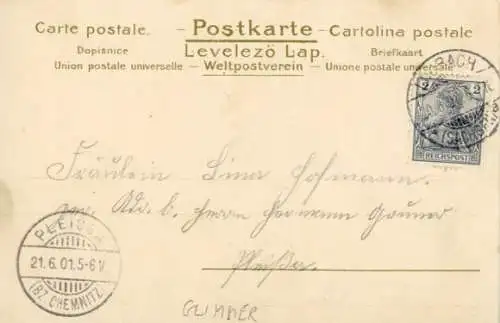 Carte postale. – Postkarte – Cartolina postale
Dopisnice Levelező Lap. Briefkaart
Union postale universelle – Weltpostverein – Unione postale universale
2 2
REICHSPOST
Fräulein Lina Hofmann.
Adr. b. Herrn Hermann
Pleißa.
PLEISSA
21.6.01.5-6N
(BZ. CHEMNITZ)